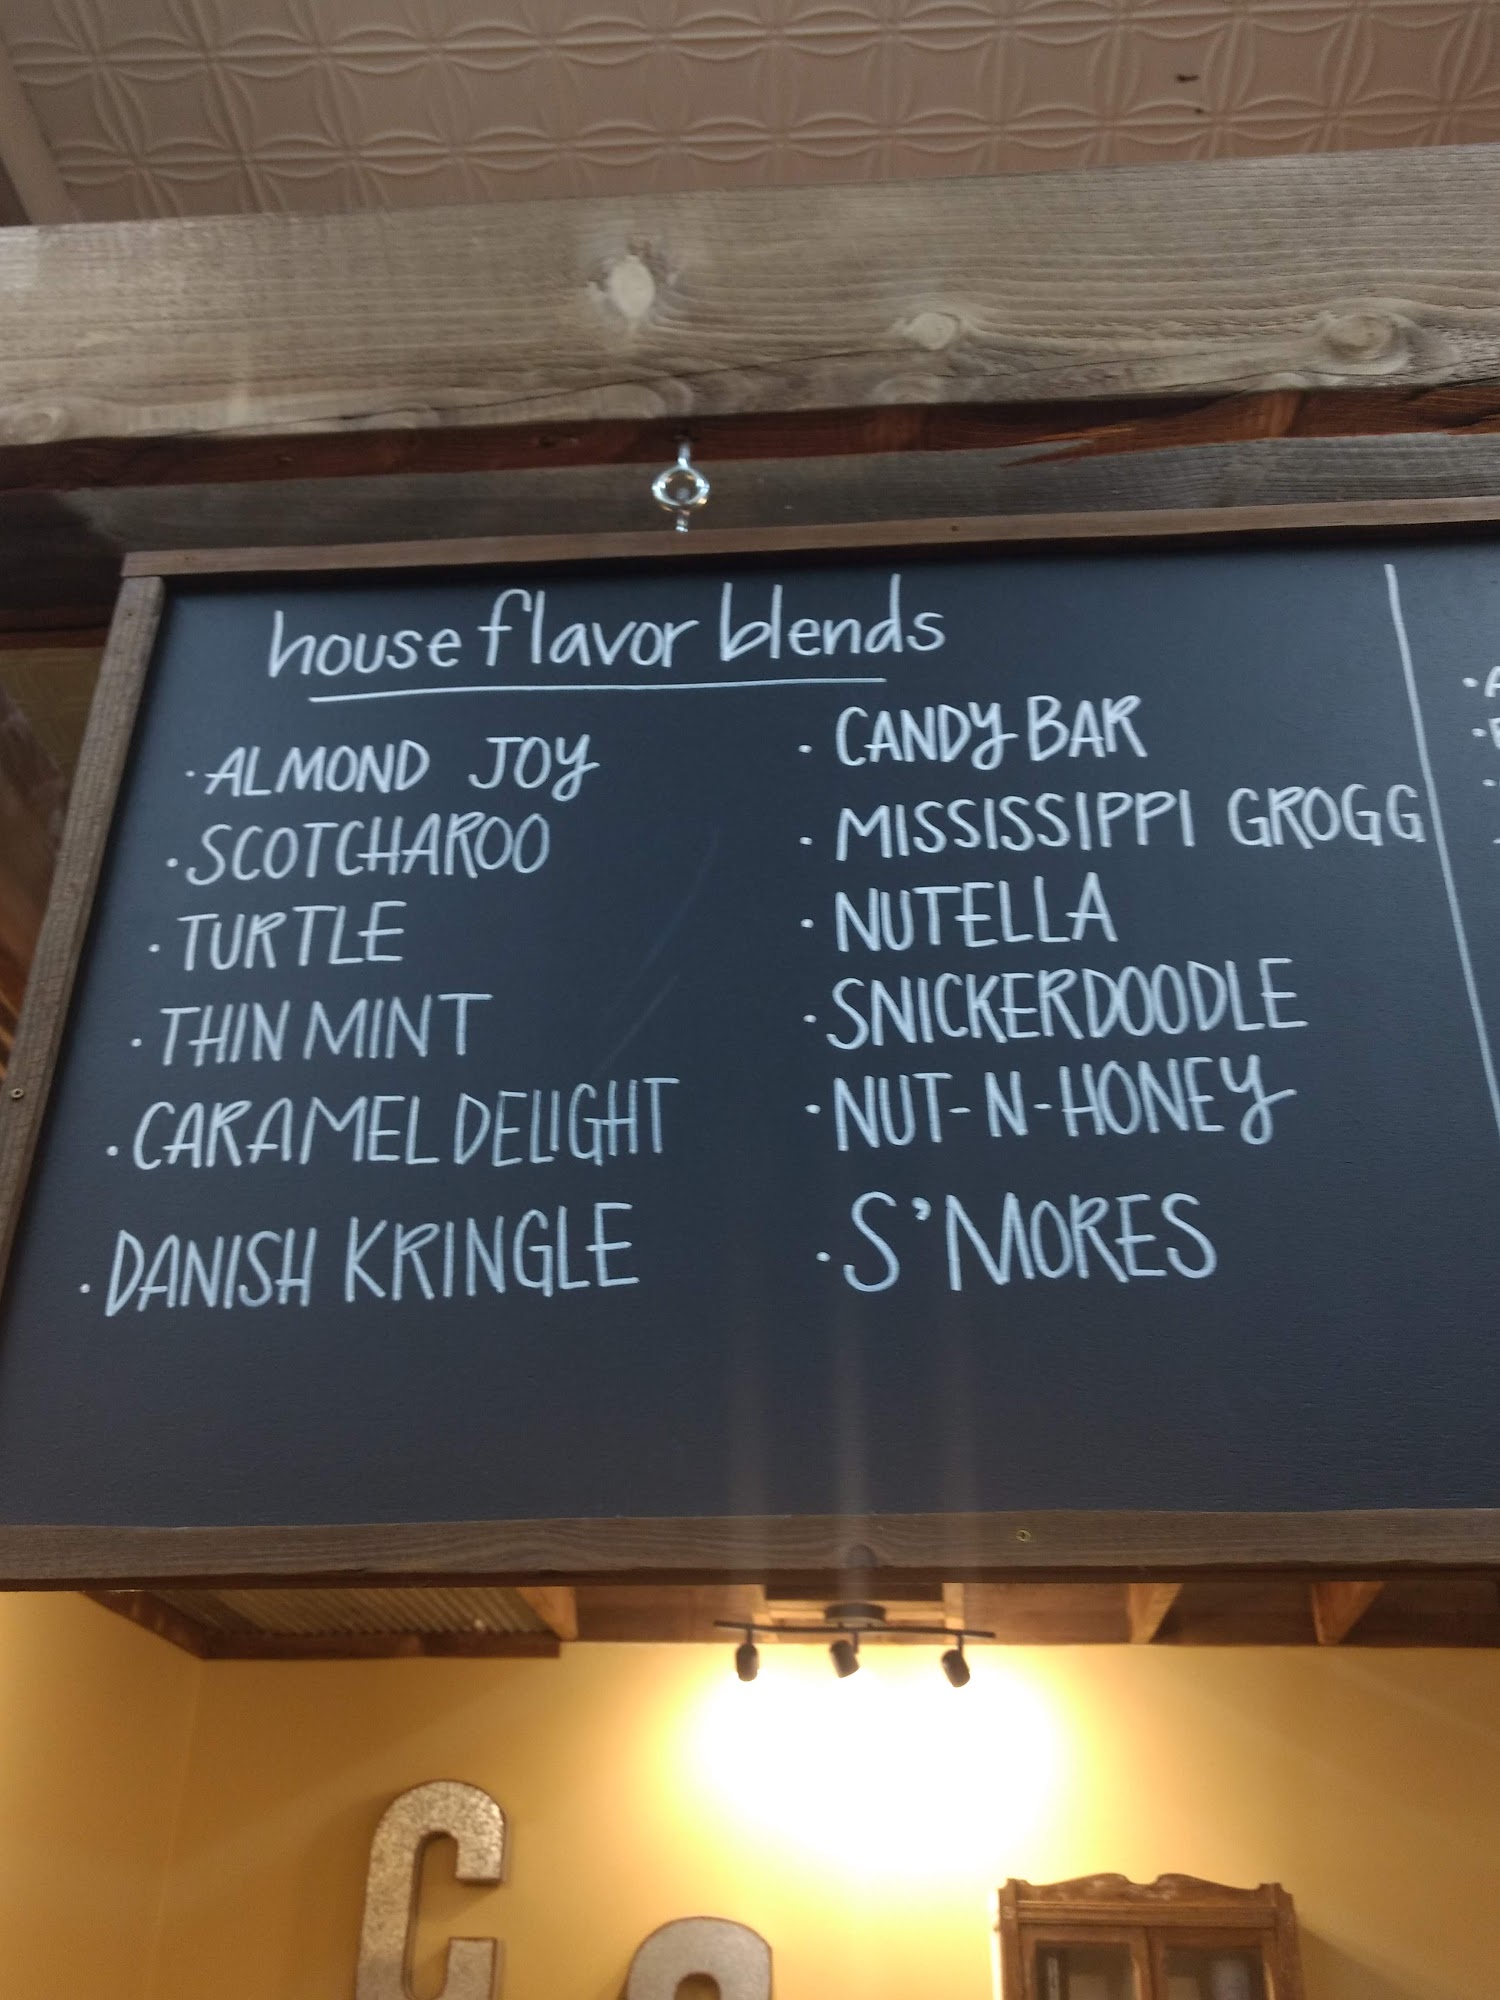 house flavor blends
· ALMOND JOY
· SCOTCHAROO
· TURTLE
· THIN MINT
· CARAMEL DELIGHT
· DANISH KRINGLE
· CANDY BAR
· MISSISSIPPI GROGG
· NUTELLA
· SNICKERDOODLE
· NUT-N-HONEY
· S'MORES
C